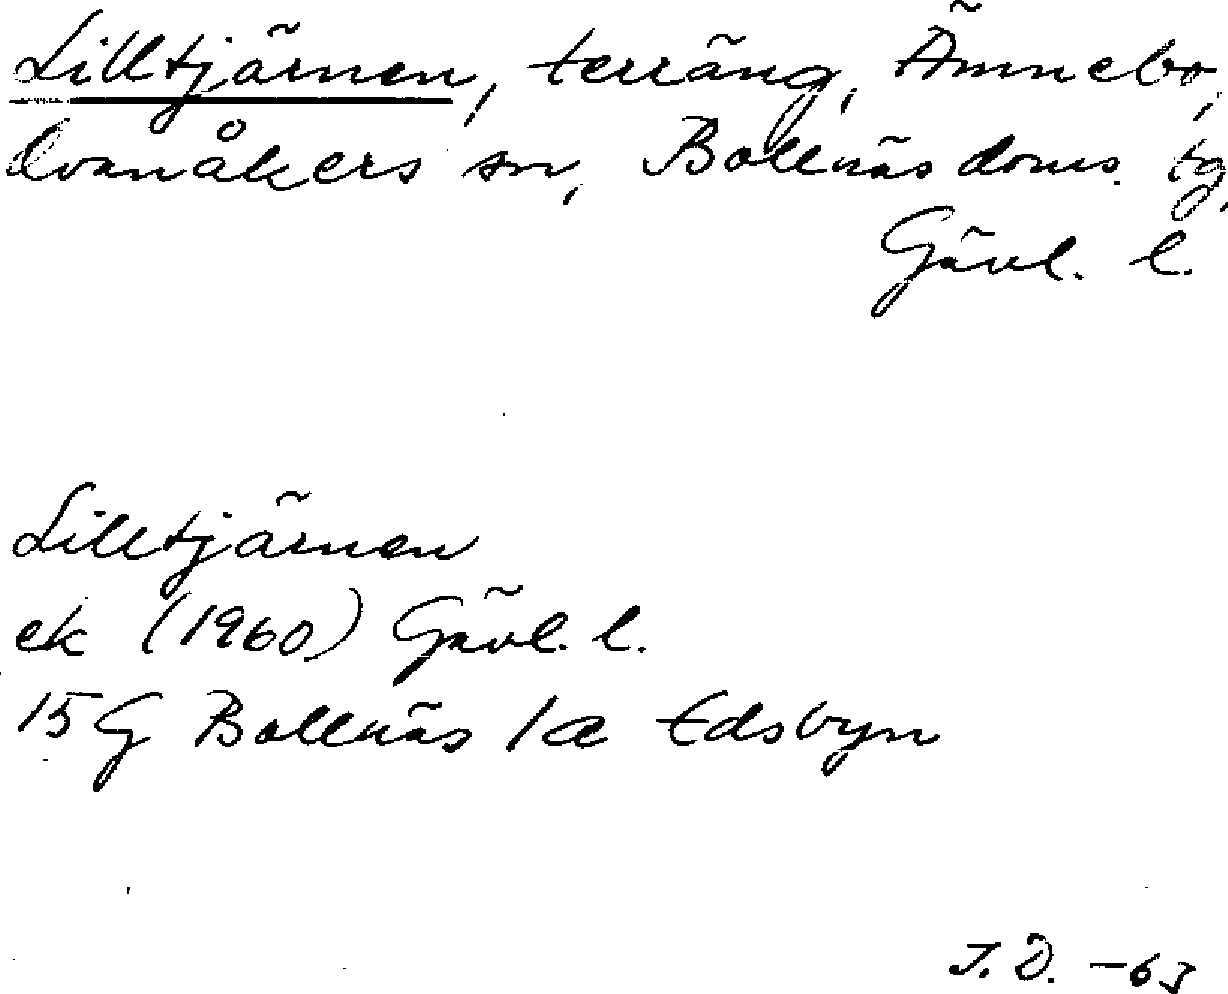 Lilltjärnen, terräng, Ämnebo,
Ovanåkers sn, Bollnäs doms. tg,
Gävl. l.
Lilltjärnen
ek (1960) Gävl. l.
15 G Bollnäs 1a Edsbyn
J. D. -63